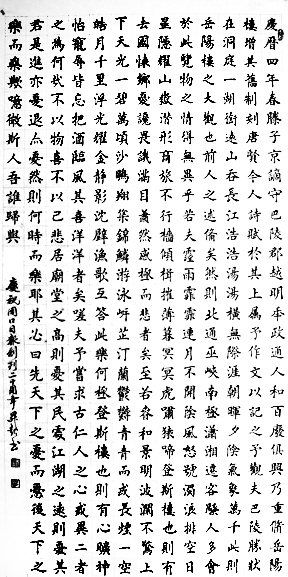 慶曆四年春滕子京謫守巴陵郡越明年政通人和百廢俱興乃重脩岳陽
樓增其舊制刻唐賢今人詩賦於其上屬予作文以記之予觀夫巴陵勝狀
在洞庭一湖銜遠山吞長江浩浩湯湯橫無際涯朝暉夕陰氣象萬千此則
岳陽樓之大觀也前人之述備矣然則北通巫峽南極瀟湘遷客騷人多會
於此覽物之情得無異乎若夫霪雨霏霏連月不開陰風怒號濁浪排空日
星隱耀山嶽潛形商旅不行檣傾楫摧薄暮冥冥虎嘯猿啼登斯樓也則有
去國懷鄉憂讒畏譏滿目蕭然感極而悲者矣至若春和景明波瀾不驚上
下天光一碧萬頃沙鷗翔集錦鱗游泳岸芷汀蘭鬱鬱青青而或長煙一空
皓月千里浮光耀金靜影沈璧漁歌互答此樂何極登斯樓也則有心曠神
怡寵辱皆忘把酒臨風其喜洋洋者矣嗟夫予嘗求古仁人之心或異二者
之為何哉不以物喜不以己悲居廟堂之高則憂其民處江湖之遠則憂其
君是進亦憂退亦憂然則何時而樂耶其必曰先天下之憂而憂後天下之
樂而樂歟噫微斯人吾誰歸與
慶祝周口日報創刊二十周年 書